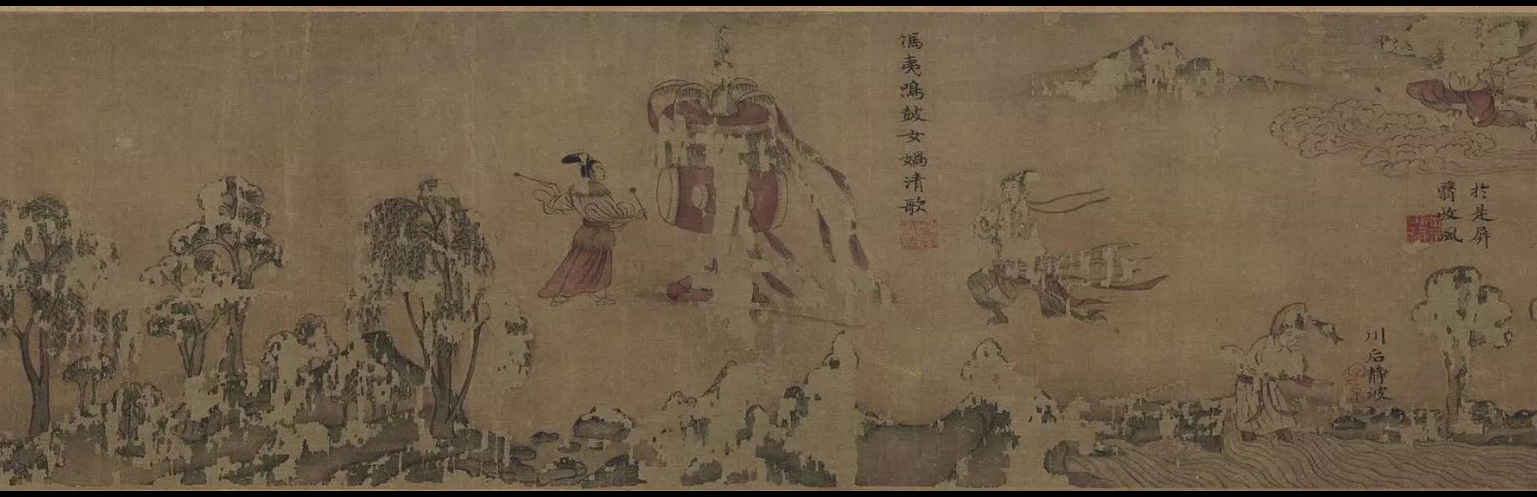 於是屏
翳收風
川后靜波
馮夷鳴鼓女媧清歌